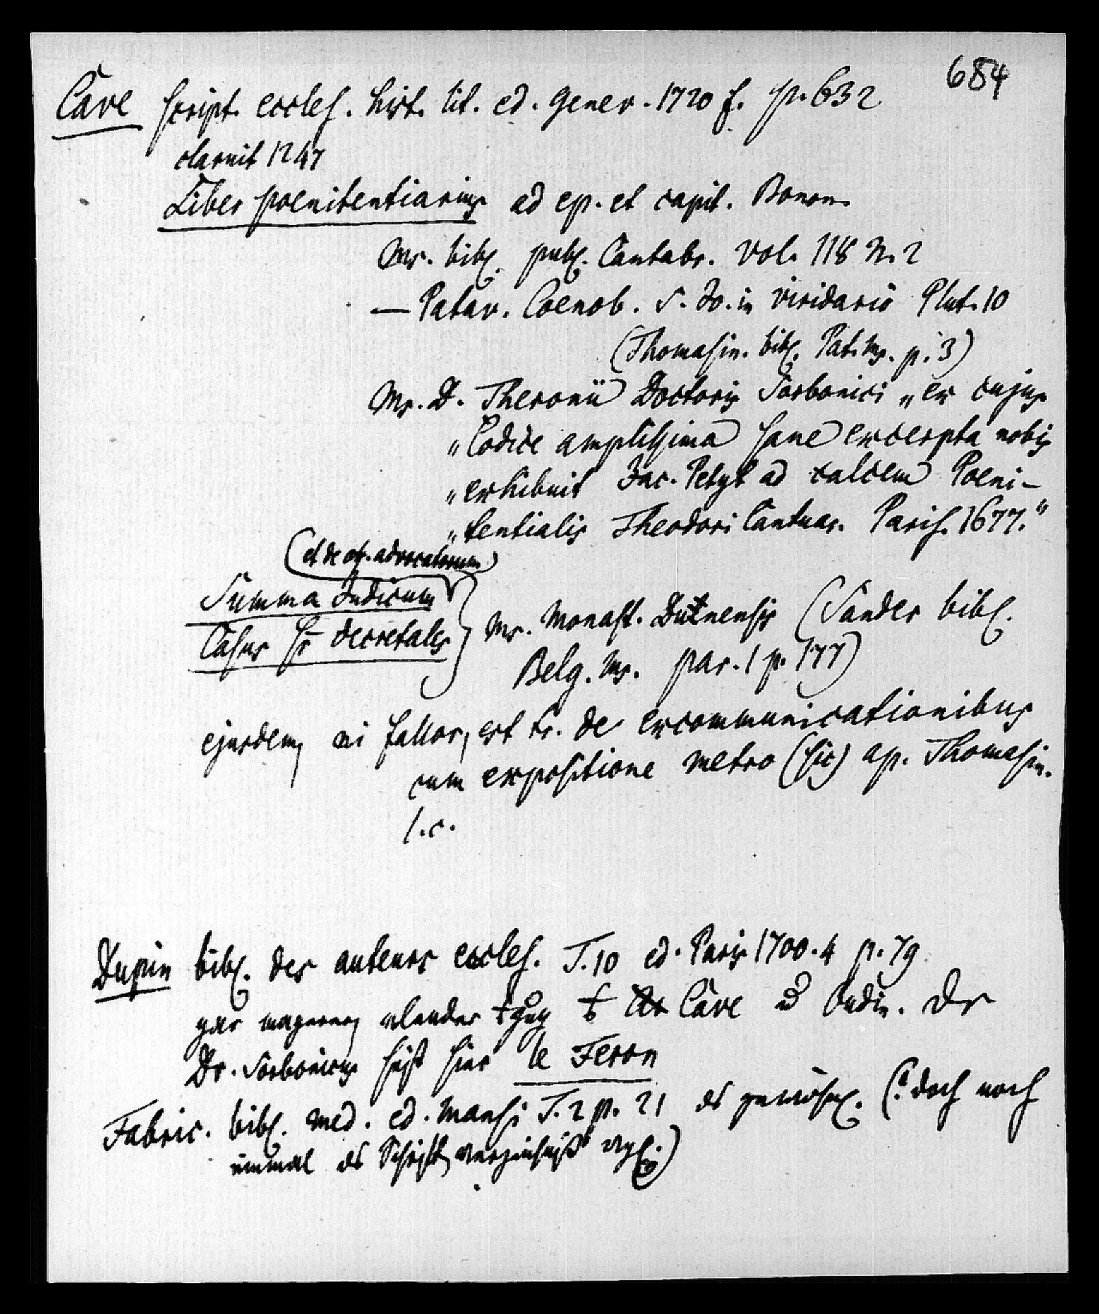 684
Cave script. eccles. hist. lit. ed. Genev. 1720 f. p. 632
claruit 1247
Liber poenitentiarius ad ep. et capit. Bonon.
Ms. bibl. publ. Cantabr. Vol. 118 N. 2
— Patav. Coenob. S. Jo. in Viridario Plut. 10
(Thomasin. bibl. Pat. Ms. p. 3)
Ms. D. Theronii Doctoris Sorbonici „ex cujus
„Codice amplissima sane excerpta nobis
„exhibuit Jac. Petyt ad calcem Poeni-
„tentialis Theodori Cantuar. Paris. 1677."
(et de off. advocatorum)
Summa Judicum
Casus sr decretales } Ms. Monast. Dunensis (Sander bibl.
Belg. Ms. par. 1 p. 177)
ejusdem, ni fallor, est tr. de excommunicationibus
cum expositione metro (sic) ap. Thomasin.
l. c.
Dupin bibl. des auteurs eccles. T. 10 ed. Paris 1700. 4 p. 79
gar Cave Oudin. Der
Dr. Sorbonicus heißt hier le Feron
Fabric. bibl. med. ed. Mansi T. 2 p. 21 (doch noch
einmal Schrift